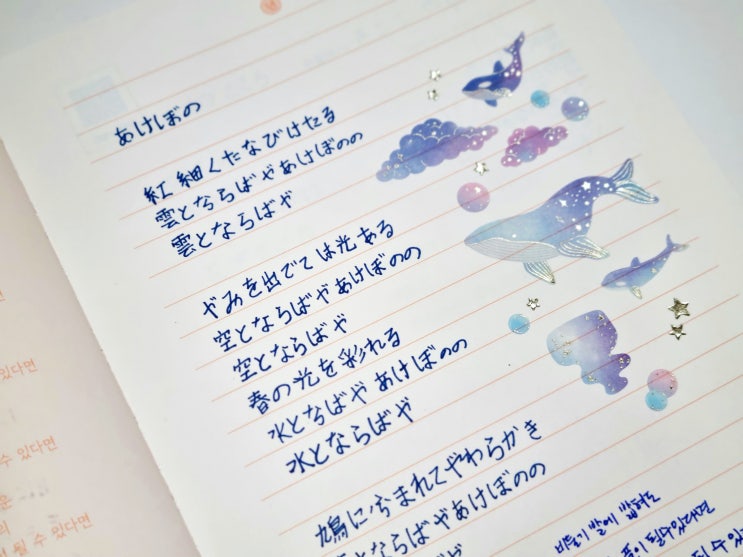 あけぼの
紅細くたなびけたる
雲とならばやあけぼのの
雲とならばや
やみを出でては光ある
空とならばやあけぼのの
空とならばや
春の光を彩れる
水となばや あけぼのの
水とならばや
鳩に まれてやわらかき
とならばやあけぼのの
비둘기 발에 밟혀도
이 될 수 있다면
될 수 있
있다면
수 있다면
운
의
될 수 있다면